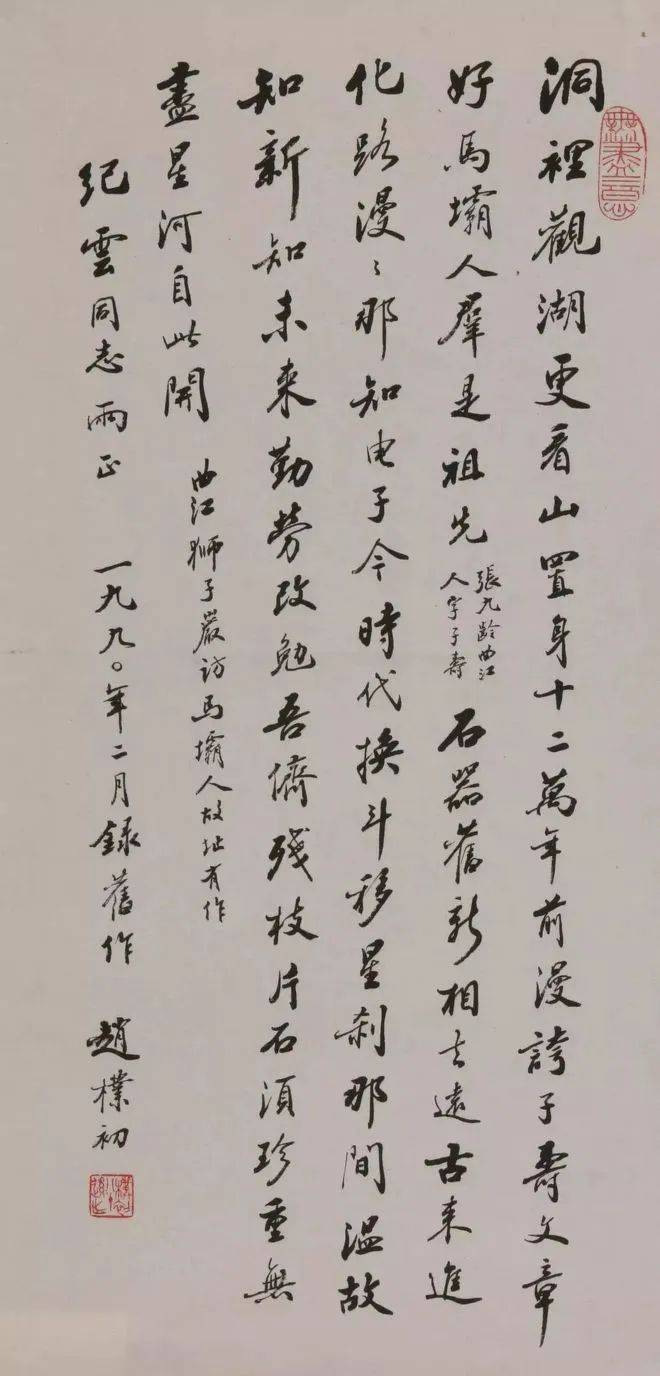 洞裡觀湖更看山置身十二萬年前漫誇子壽文章
好馬壩人羣是祖先
張九齡曲江
人字子壽
石器舊新相去遠古來進
化路漫〻那知电子今時代換斗移星刹那間温故
知新知未来勤勞改勉吾儕殘枝片石須珍重無
盡星河自此開
曲江狮子巖訪馬壩人故址有作
紀雲同志兩正
一九九〇年二月録舊作
趙樸初
無盡意
趙樸初